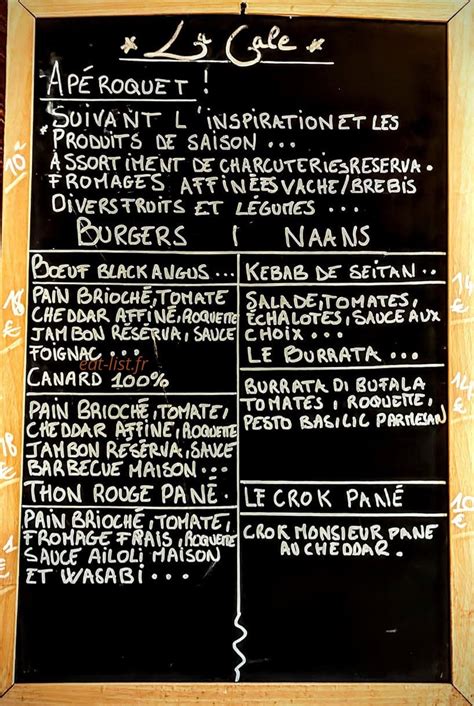 La Cale
APÉROQUET !
SUIVANT L'INSPIRATION ET LES
PRODUITS DE SAISON ...
ASSORTIMENT DE CHARCUTERIES RESERVA.
FROMAGES AFFINÉES VACHE/BREBIS
DIVERS FRUITS ET LÉGUMES ...
10€
BURGERS | NAANS
BOEUF BLACK ANGUS ...
PAIN BRIOCHÉ, TOMATE
CHEDDAR AFFINÉ, ROQUETTE
JAMBON RÉSERVA, SAUCE
FOIGNAC ...
18
€
CANARD 100%
PAIN BRIOCHÉ, TOMATE,
CHEDDAR AFFINÉ, ROQUETTE
JAMBON RESERVA, SAUCE
BARBECUE MAISON ...
18
€
THON ROUGE PANÉ.
PAIN BRIOCHÉ, TOMATE,
FROMAGE FRAIS, ROQUETTE
SAUCE AILOLI MAISON
ET WASABI ...
€
KEBAB DE SEITAN ..
SALADE, TOMATES,
ÉCHALOTES, SAUCE AUX
CHOIX ...
14
€
LE BURRATA ...
BURRATA DI BUFALA
TOMATES, ROQUETTE,
PESTO BASILIC PARMESAN
14
€
LE CROK PANÉ
CROK MONSIEUR PANE
AU CHEDDAR.
10
€
eat-list.fr